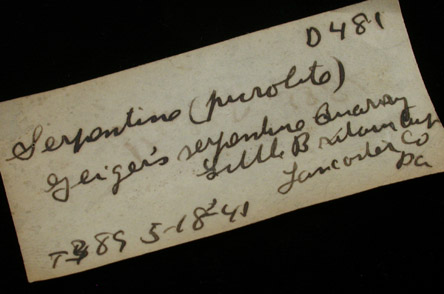 D481
Serpentine (picrolite)
Geiger's serpentine Quarry
Little Britain twp
Lancaster Co
Pa
5-18-41